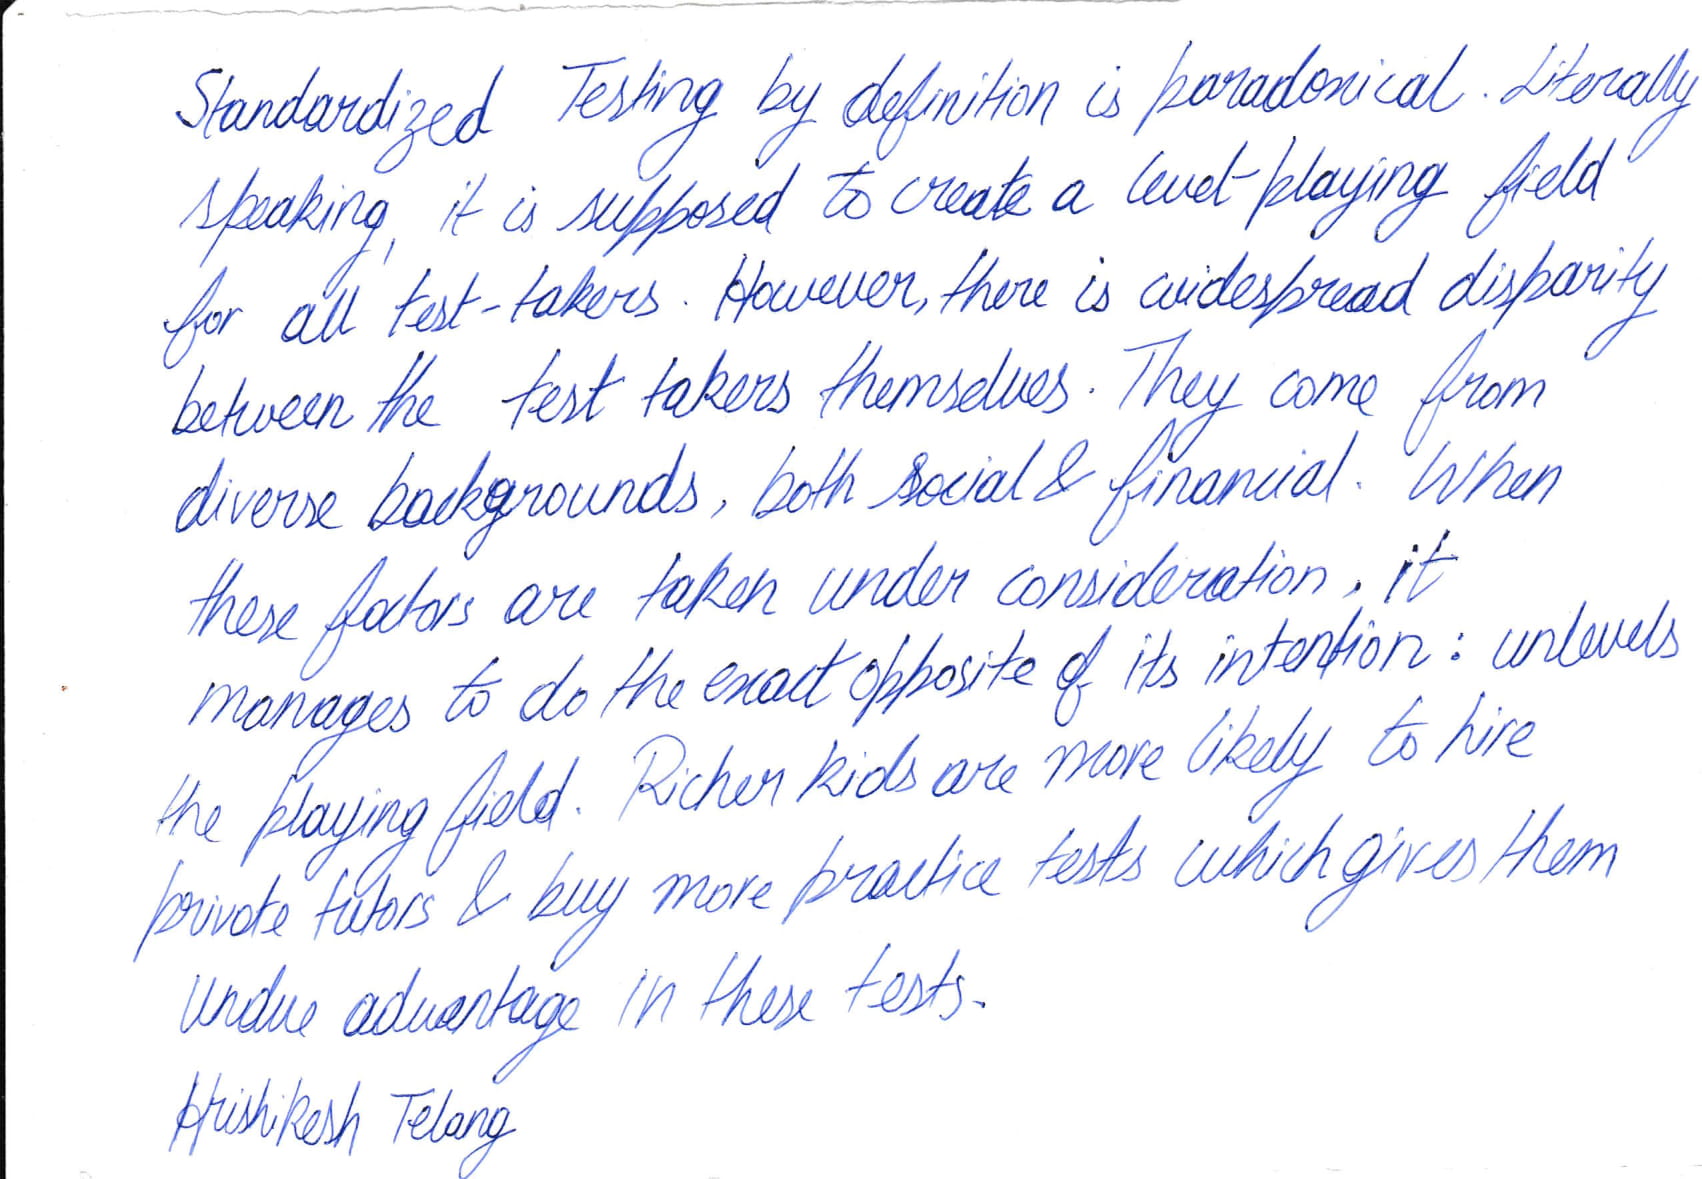 Standardized Testing by definition is paradoxical. Literally
speaking, it is supposed to create a level-playing field
for all test-takers. However, there is widespread disparity
between the test takers themselves. They come from
diverse backgrounds, both social & financial. When
these factors are taken under consideration, it
manages to do the exact opposite of its intention: unlevels
the playing field. Richer kids are more likely to hire
private tutors & buy more practice tests which gives them
undue advantage in these tests.
Hrishikesh Telang